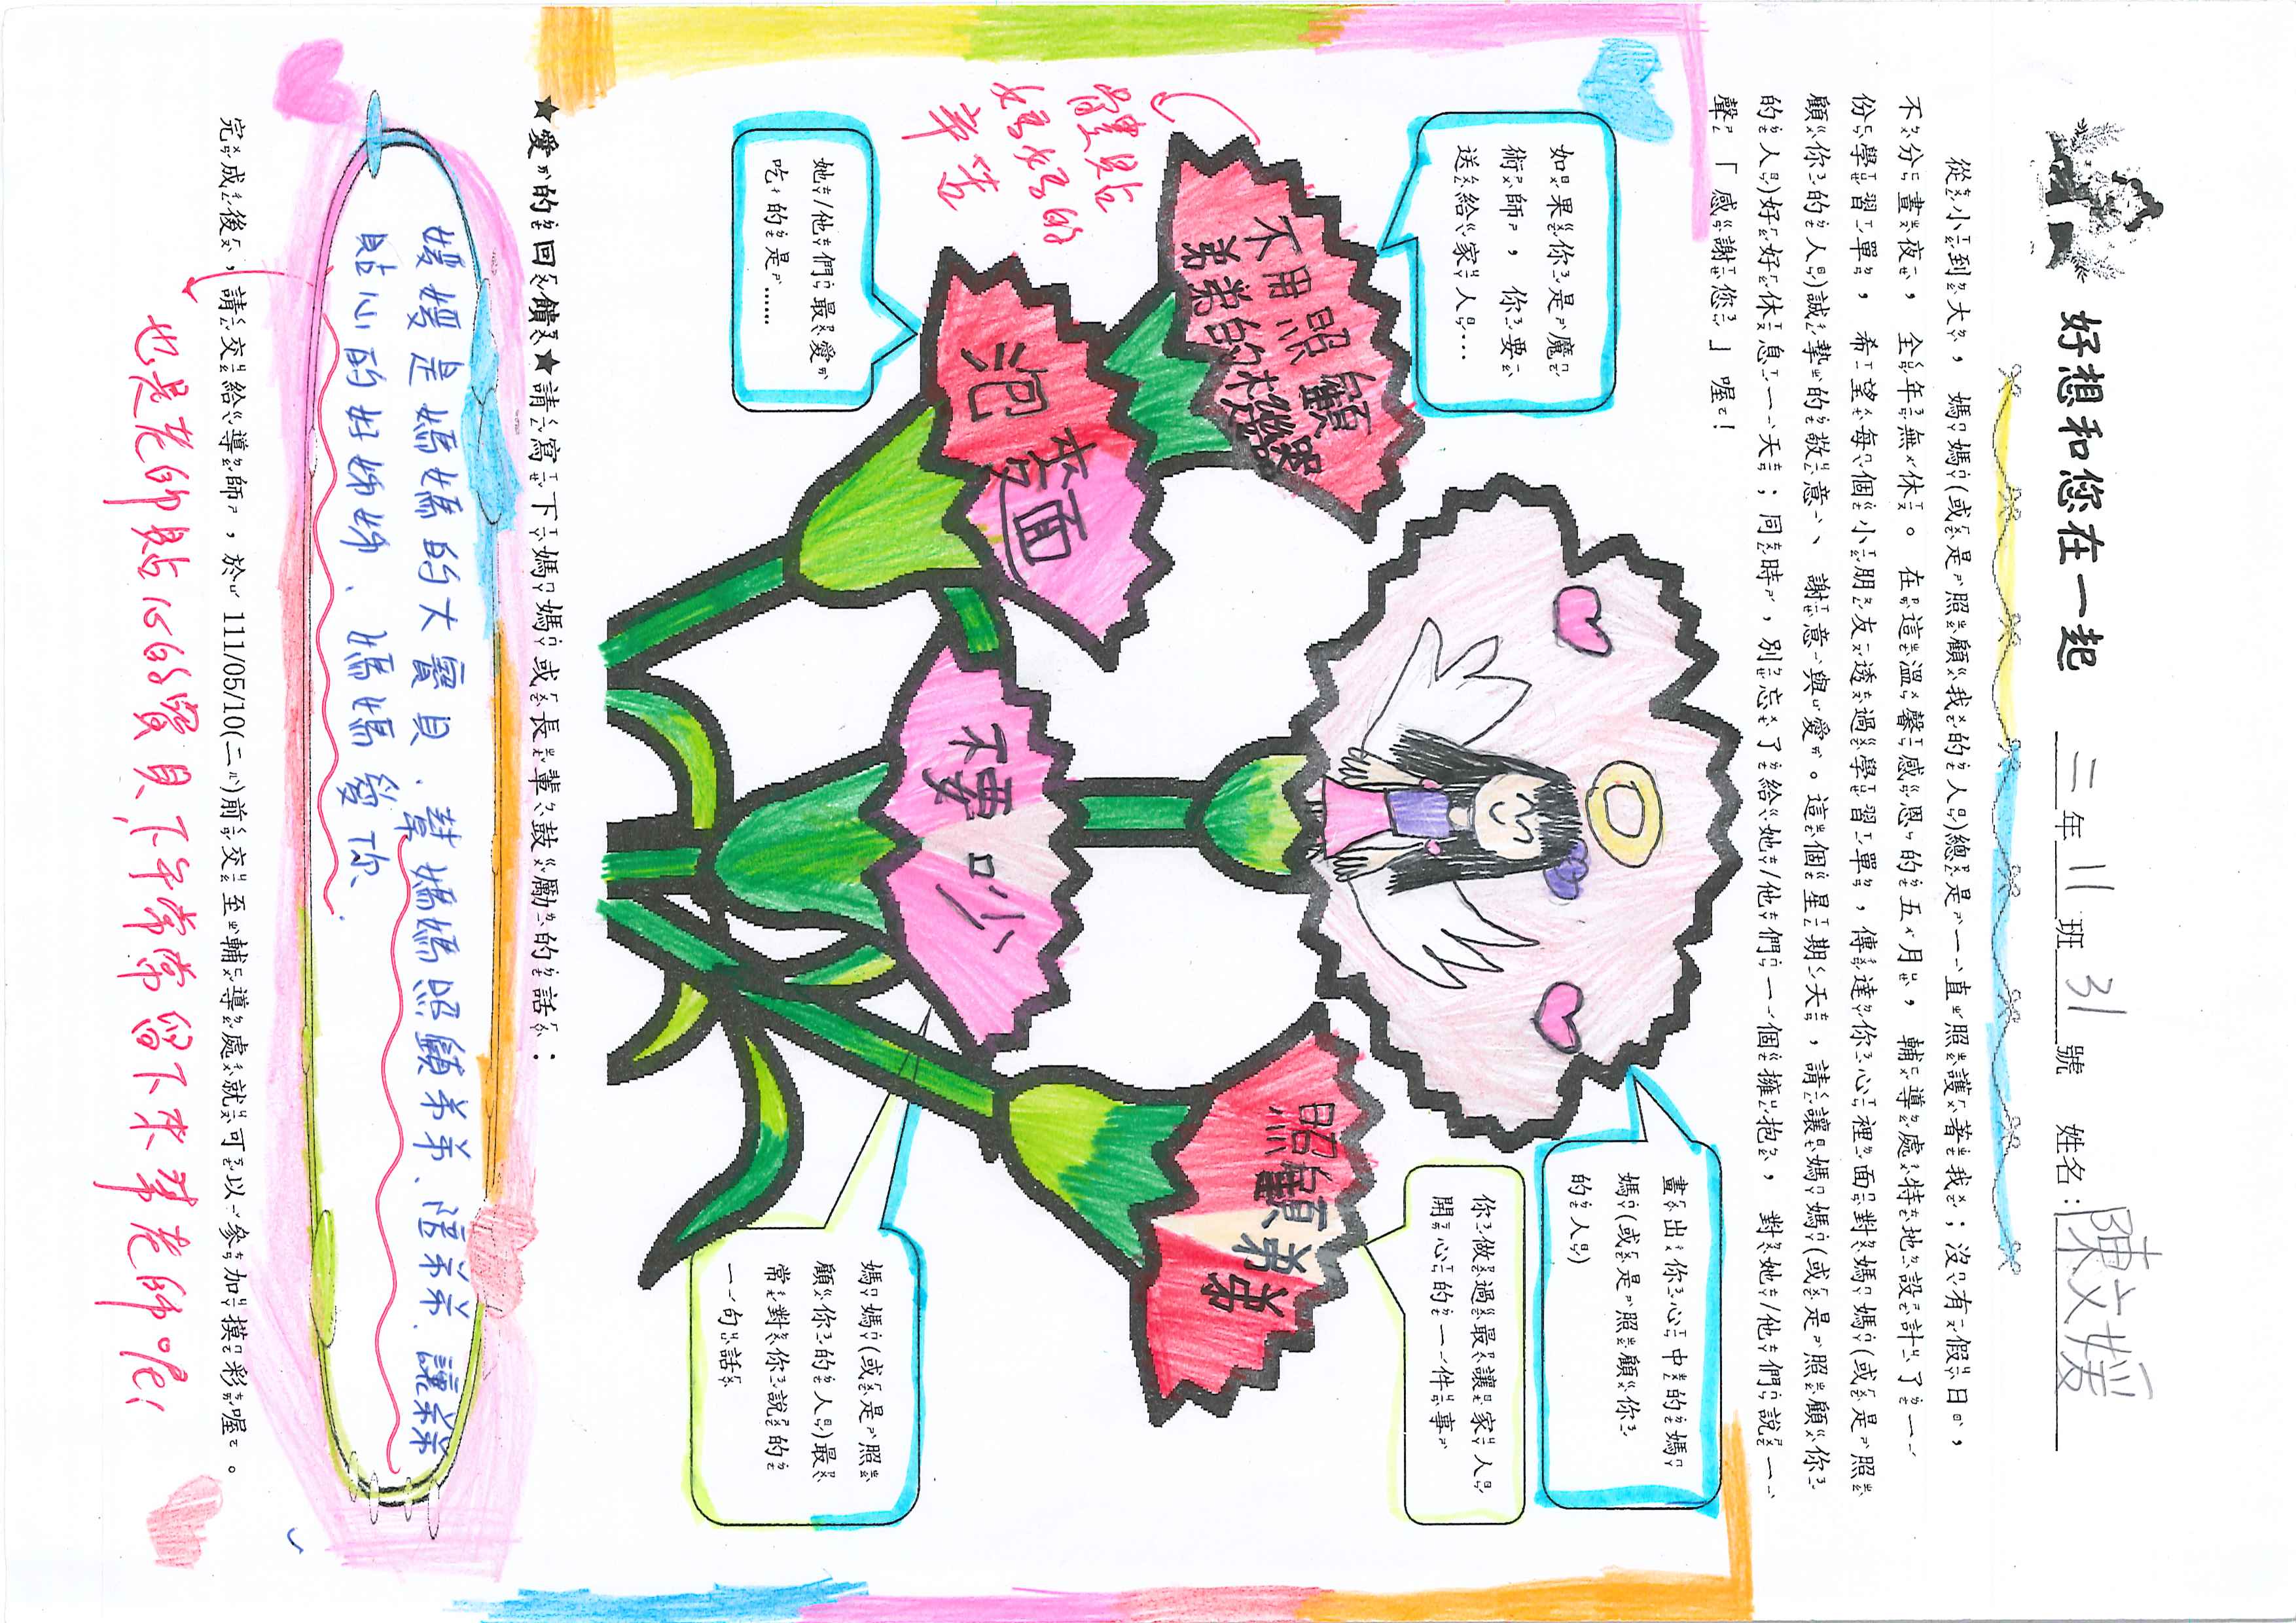 好想和您在一起 二年11班31號 姓名:陳文媛
從小到大，媽媽(或是照顧我的人)總是一直照護著我；沒有假日，
不分晝夜，全年無休。在這溫馨感恩的五月，輔導處特地設計了一
份學習單，希望每個小朋友透過學習單，傳達你心裡面對媽媽(或是照
顧你的人)誠摯的敬意、謝意與愛。這個星期天，請讓媽媽(或是照顧你
的人)好好休息一天；同時，別忘了給她/他們一個擁抱，對她/他們說一
聲「感謝您」喔！
如果你是魔
術師，你要
送給家人…
不用照顧
弟弟的機器
體貼
媽媽的
辛苦
畫出你心中的媽
媽(或是照顧你
的人)
你做過最讓家人
開心的一件事
照顧弟弟
她/他們最愛
吃的是……
泡麥面
媽媽(或是照
顧你的人)最
常對你說的
一句話
不要吵
★愛的回饋★請寫下媽媽或長輩鼓勵的話：
媛媛是媽媽的大寶貝、幫媽媽照顧弟弟、陪弟弟、讓弟弟
貼心的好姊姊、媽媽愛你、
完成後，請交給導師，於111/05/10(二)前交至輔導處就可以參加摸彩喔。
也是老師貼心的寶貝，下午常常留下來幫老師呢！